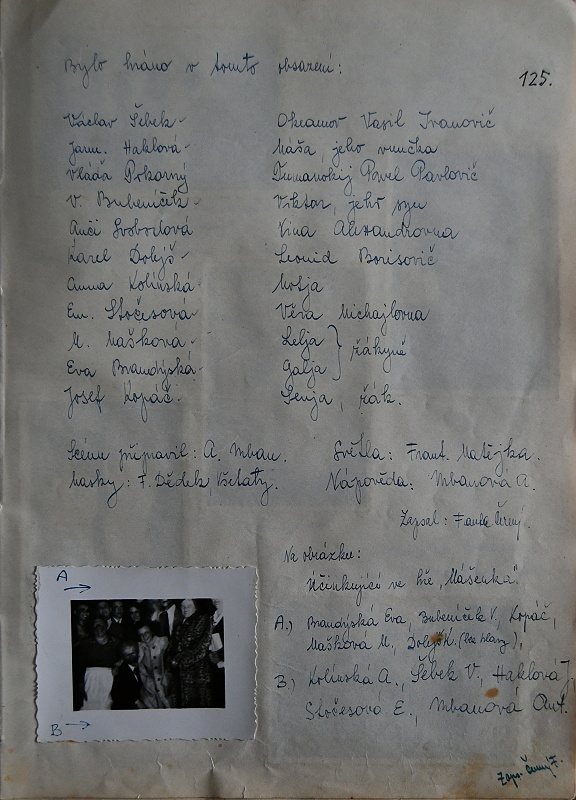 Bylo hráno v tomto obsazení:
125.
Václav Šebek - Okeamov Vasil Ivanovič
Jarm. Haklová - Máša, jeho vnučka
Vláďa Pokorný Tumanskij Pavel Pavlovič
V. Bubeníček - Viktor, jeho syn
Anči Svobodová Nina Alexandrovna
Karel Dolejš - Leonid Borisovič
Anna Kolínská - Motja
Em. Stočesová - Věra Michajlovna
M. Mašková - Lelja
Eva Brandýská - Galja } žákyně
Josef Kopáč - Senja, žák.
Scénu připravil: A. Mban. Světla: Frant. Matějka.
Masky: F. Dědek, Všetaty. Nápověda: Mbanová A.
Zapsal: Fanda Černý.
Na obrázku:
Účinkující ve hře „Mášenka“.
A.) Brandýská Eva, Bubeníček V., Kopáč,
Mašková M., Dolejš K. (bez hlavy),
B.) Kolínská A., Šebek V., Haklová J.
Stočesová E., Mbanová Ant.
A
B
Zaps. Černý F.